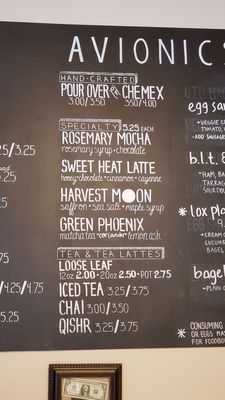 AVIONICS
HAND-CRAFTED
POUR OVER OR CHEMEX
3.00/3.50 3.50/4.00
SPECIALTY 5.25 EACH
ROSEMARY MOCHA
rosemary syrup • chocolate
SWEET HEAT LATTE
honey • chocolate • cinnamon • cayenne
HARVEST MOON
saffron • sea salt • maple syrup
GREEN PHOENIX
matcha tea • coriander • lemon ash
TEA & TEA LATTES
LOOSE LEAF
12oz 2.00 • 20oz 2.50 • POT 2.75
ICED TEA 3.25/3.75
CHAI 3.00/3.50
QISHR 3.25/3.75
.25/3.25
4.25/4.75
5.25
egg san
• VEGGIE
TOMATO,
• ADD SAUSAGE
b.l.t. &
• HAM, BA
TARRAG
SOURDOU
* lox pla
9.
• CREAM
CUCUMBE
BAGEL
bagel
• PLAIN
* CONSUMING
OR EGGS MA
FOR FOODBO